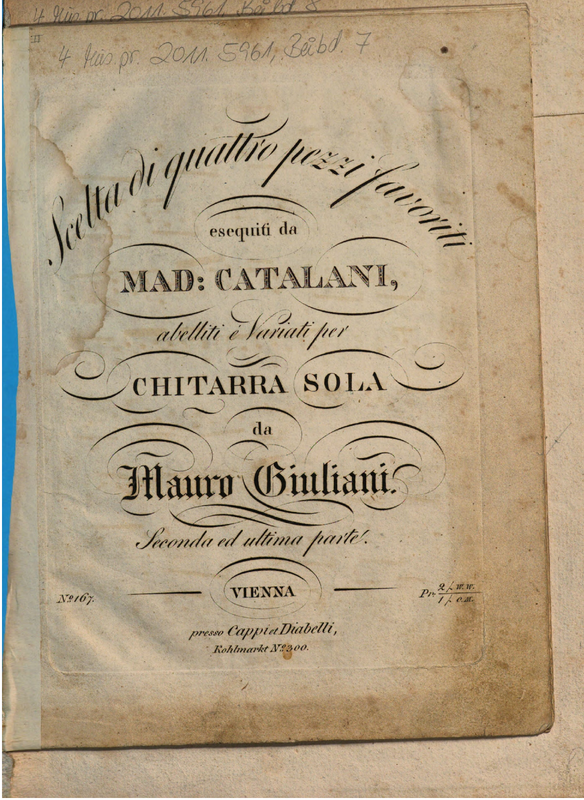 4 Mus.pr. 2011.5961, Beibd. 8
4 Mus.pr. 2011.5961, Beibd. 7
Scelta di quattro pezzi favoriti
esequiti da
MAD: CATALANI,
abelliti è Variati per
CHITARRA SOLA
da
Mauro Giuliani.
Seconda ed ultima parte.
VIENNA
No 167.
Pr. 2 f. w.w.
1 f. c.m.
presso Cappi et Diabelli,
Kohlmarkt No 300.